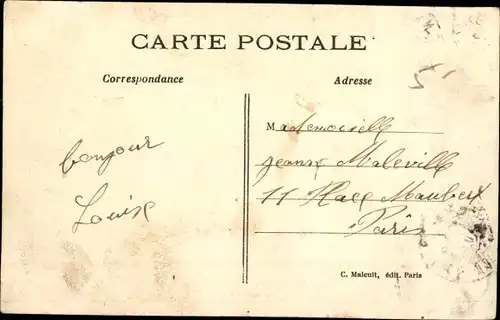 CARTE POSTALE
Correspondance
Adresse
bonjour
Louise
Mademoiselle
Jeanne Maleville
11 Place Maubert
Paris
C. Malcuit, édit. Paris